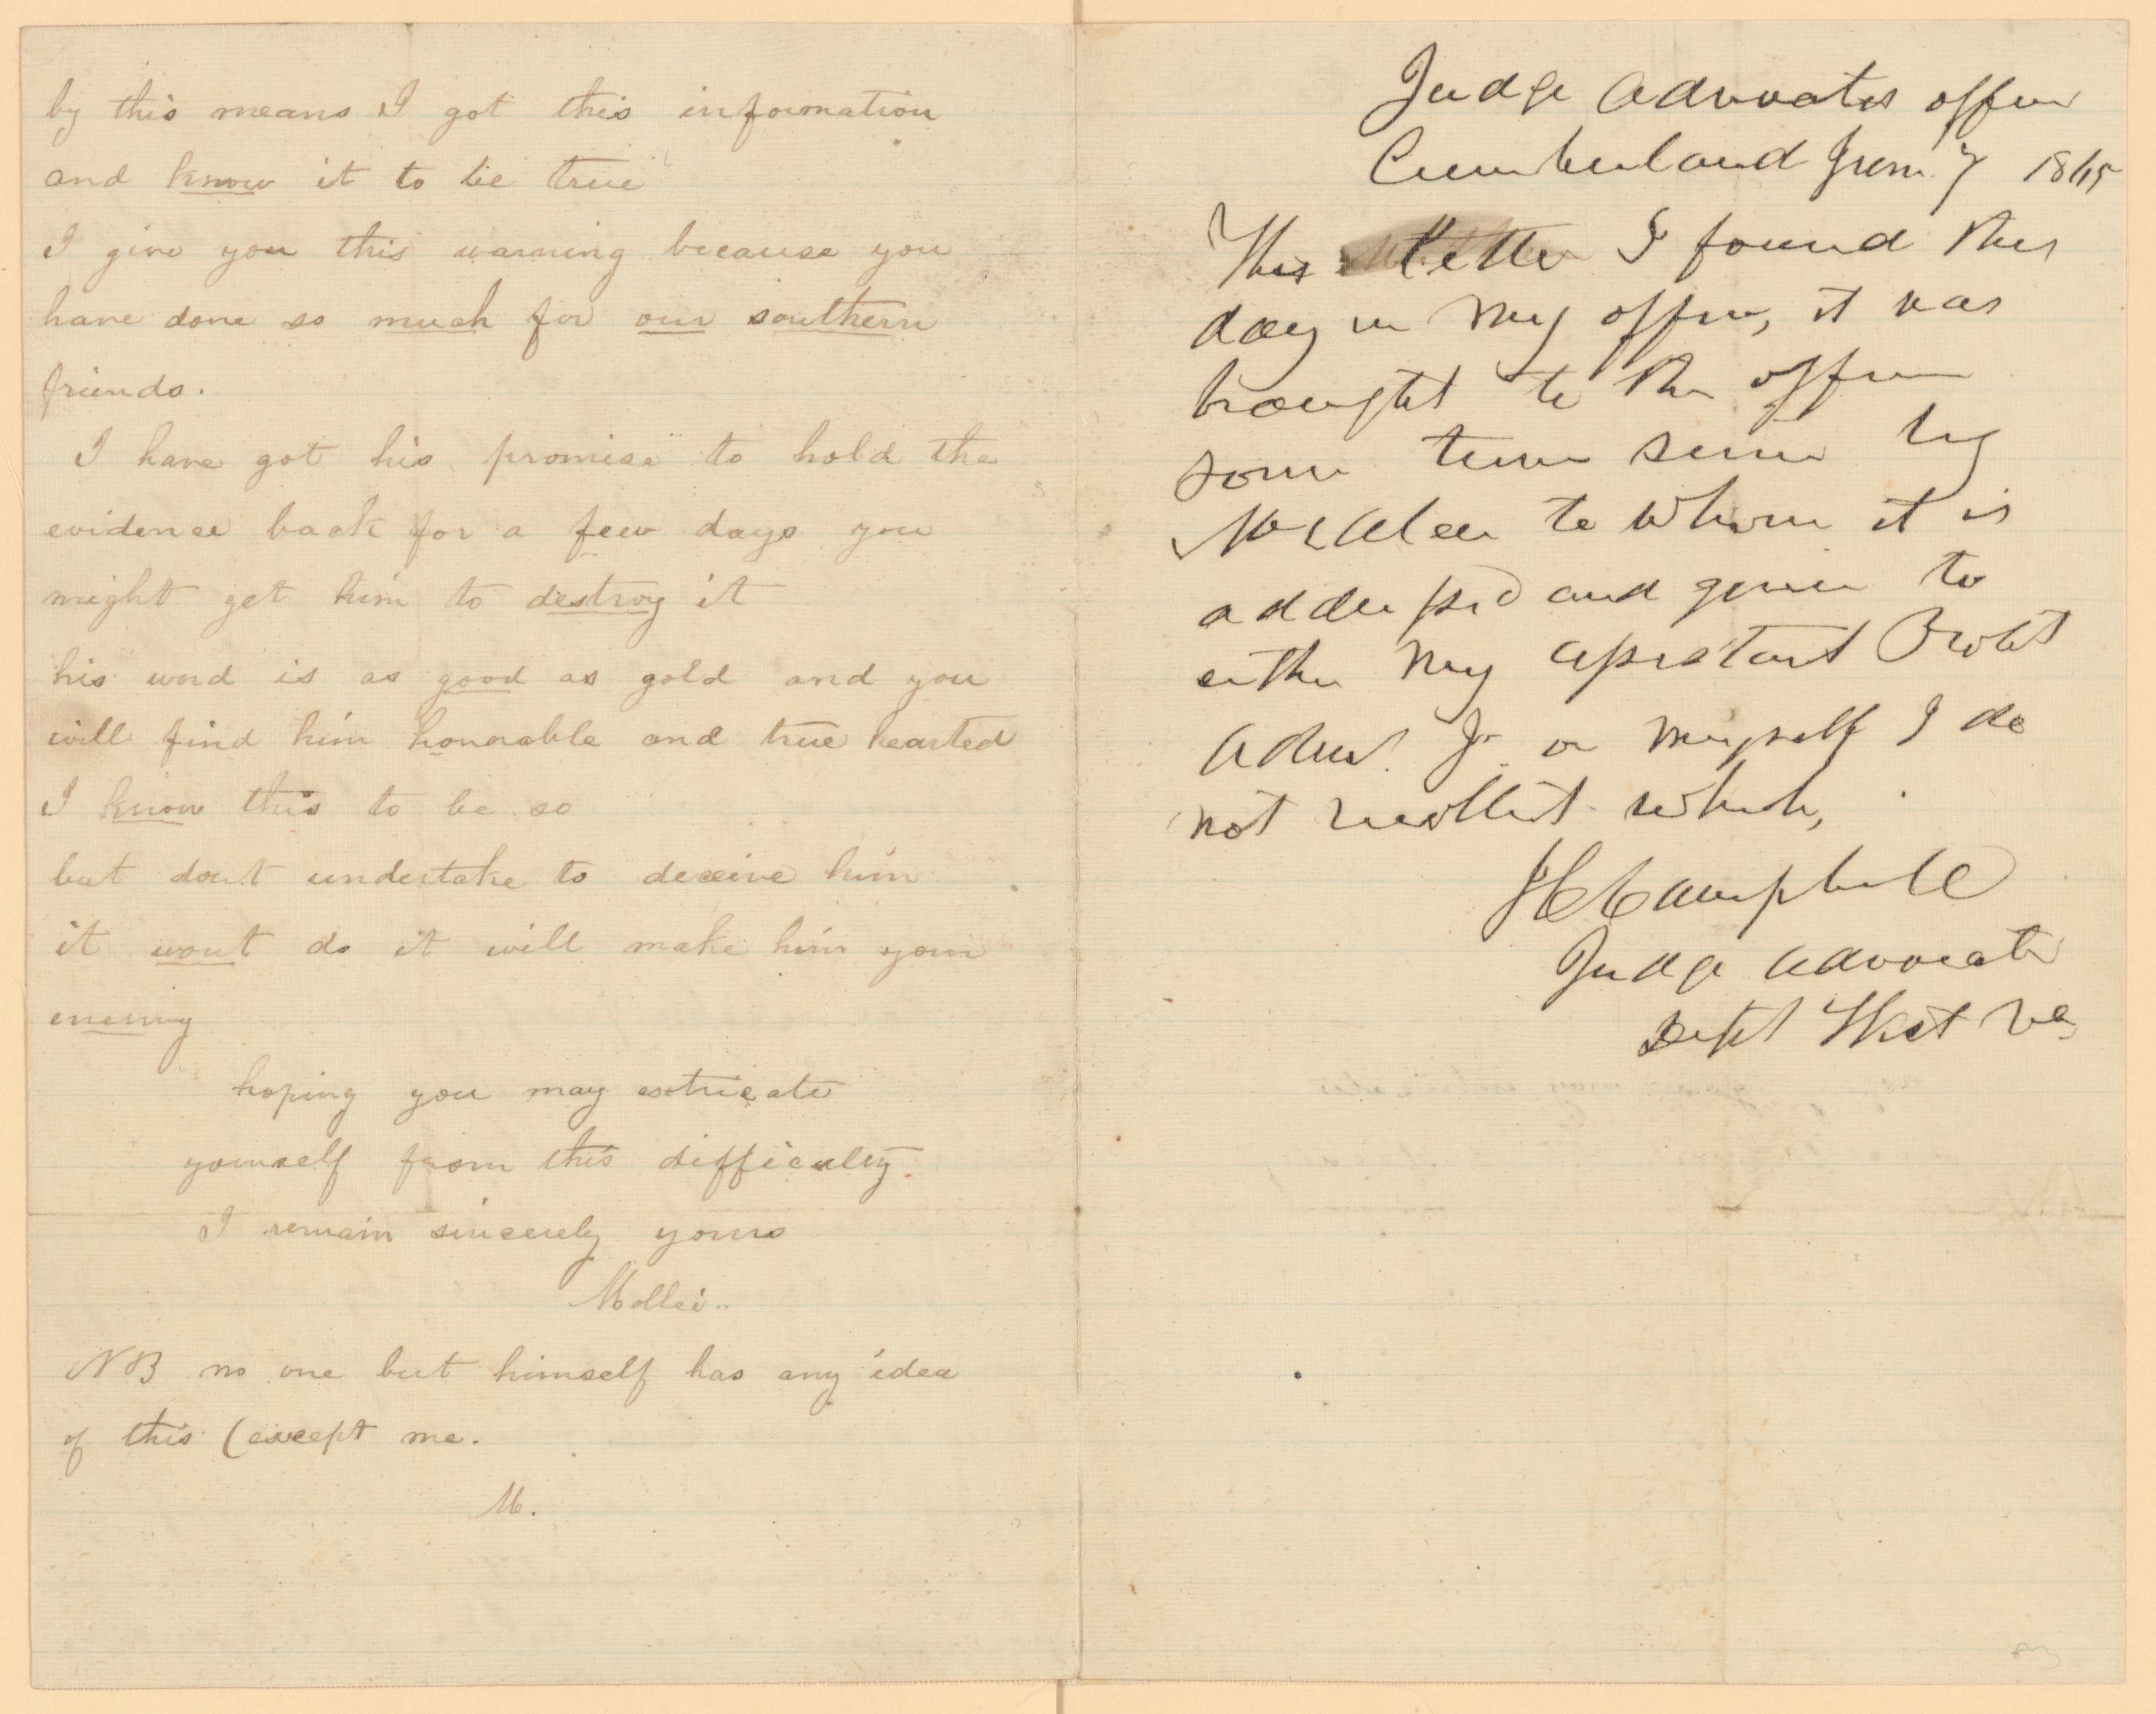 by this means I got this information
and know it to be true
I give you this warning because you
have done so much for our southern
friends.
I have got his promise to hold the
evidence back for a few days you
might get him to destroy it
his word is as good as gold and you
will find him honorable and true hearted
I know this to be so
but dont undertake to deceive him
it wont do it will make him your
enemy
hoping you may extricate
yourself from this difficulty.
I remain sincerely yours
Mollei..
NB no one but himself has any idea
of this (except me.
M.
Judge Advocates office
Cumberland June 7 1865
This letter I found this
day in my office, it was
brought to the office
some time since by
to whom it is
addressed and given to
either my assistant
Advt. Jr or myself I do
not recollect which,
Campbell
Judge Advocate
Dept West Va